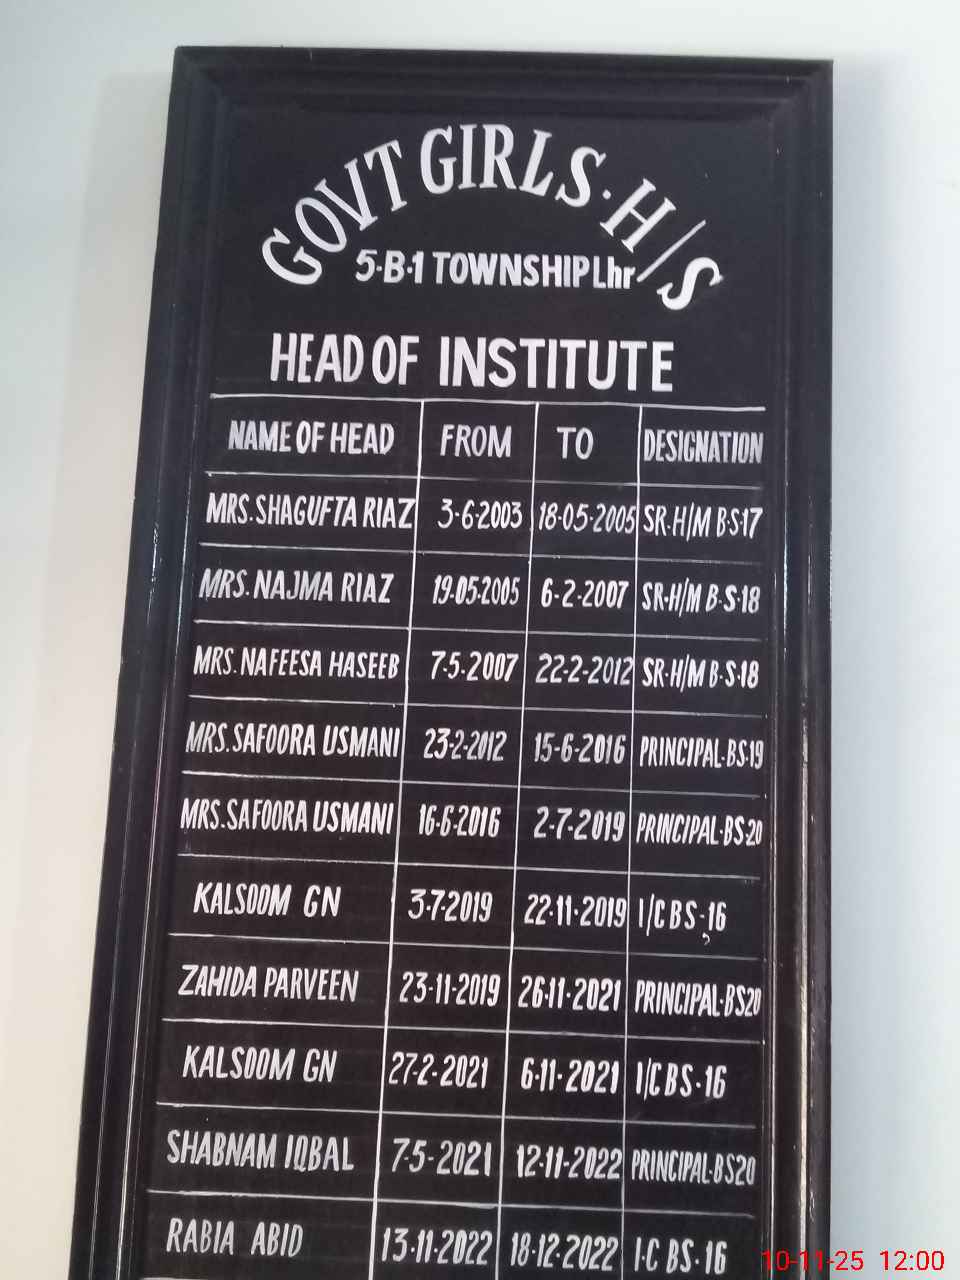 GOVT GIRLS·H/S
5·B·1 TOWNSHIP Lhr
HEAD OF INSTITUTE
NAME OF HEAD FROM TO DESIGNATION
MRS.SHAGUFTA RIAZ 3-6-2003 18-05-2005 SR·H/M B·S·17
MRS.NAJMA RIAZ 19.05.2005 6-2-2007 SR·H/M B·S·18
MRS.NAFEESA HASEEB 7-5-2007 22-2-2012 SR·H/M B·S·18
MRS.SAFOORA USMANI 23-2-2012 15-6-2016 PRINCIPAL·BS·19
MRS.SAFOORA USMANI 16-6-2016 2-7-2019 PRINCIPAL·BS·20
KALSOOM GN 3·7·2019 22·11·2019 I/C BS·16
ZAHIDA PARVEEN 23-11-2019 26·11·2021 PRINCIPAL·BS20
KALSOOM GN 27-2-2021 6·11·2021 I/C BS·16
SHABNAM IQBAL 7-5-2021 12·11-2022 PRINCIPAL·BS20
RABIA ABID 13·11·2022 18·12·2022 I·C BS·16
10-11-25 12:00